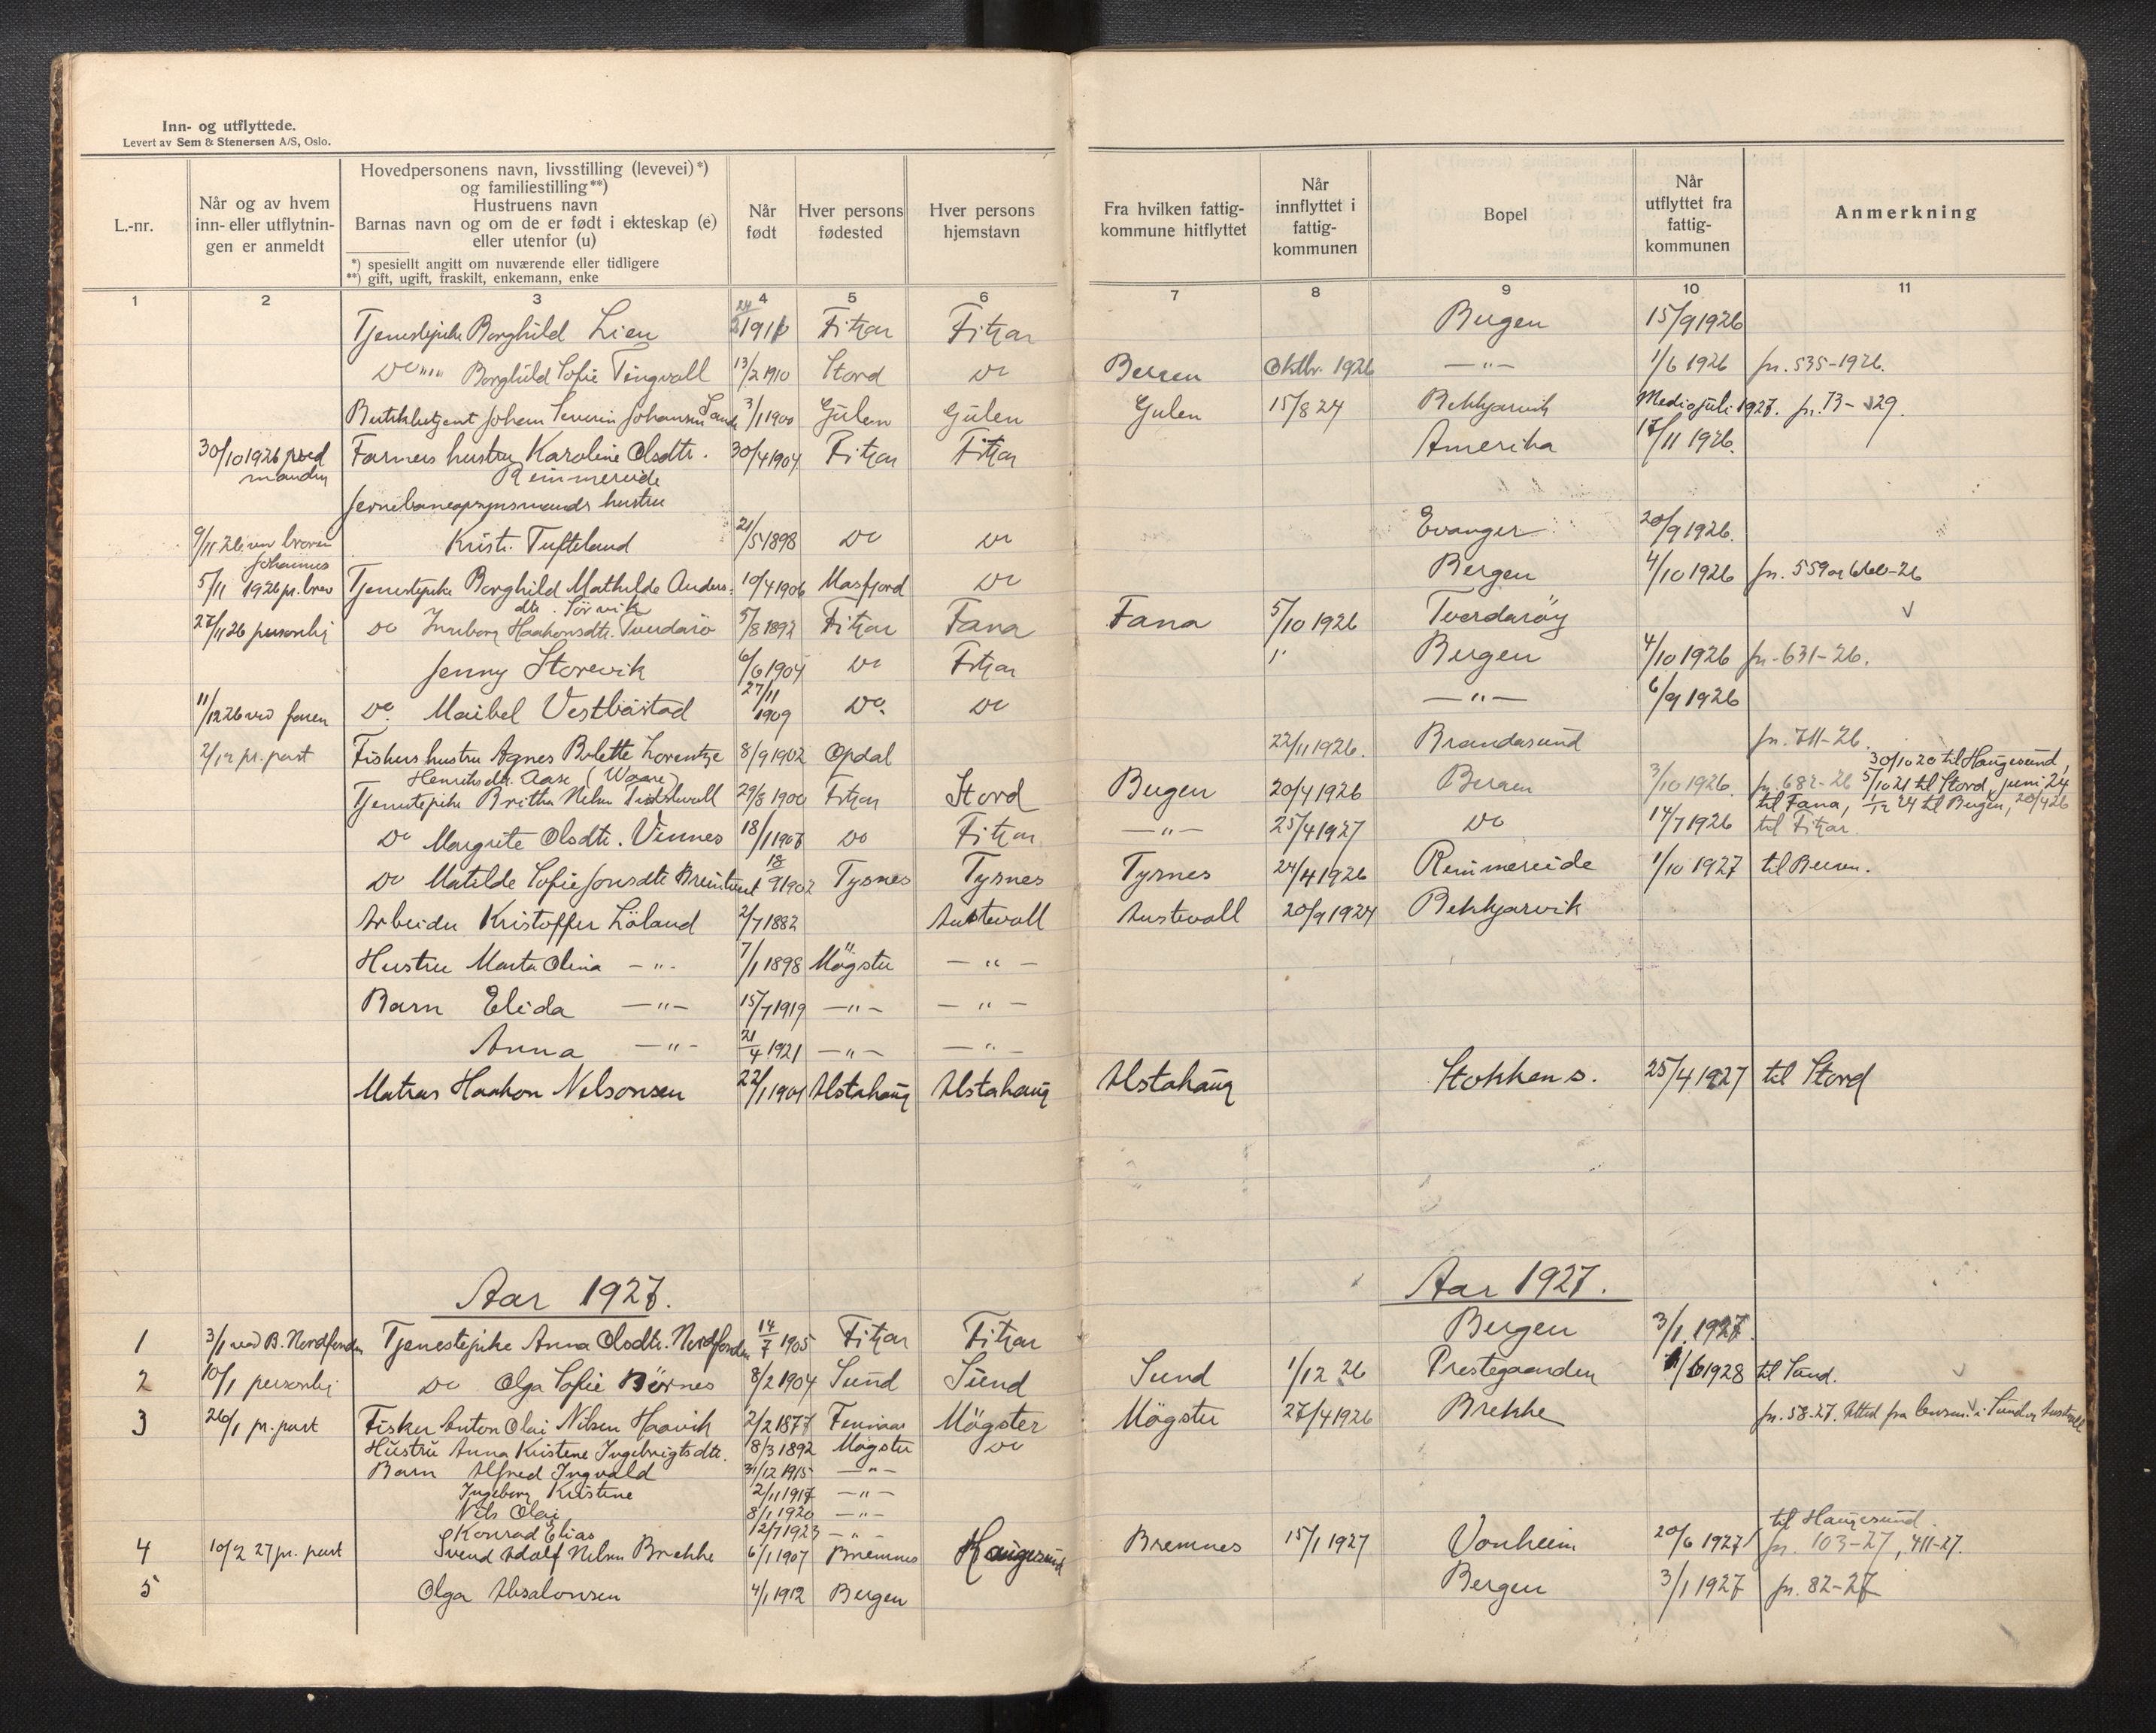 Inn- og utflyttede.
Levert av Sem & Stenersen A/S, Oslo.
L.-nr.
Når og av hvem inn- eller utflytnin- gen er anmeldt
Hovedpersonens navn, livsstilling (levevei)*)
og familiestilling**)
Hustruens navn
Barnas navn og om de er født i ekteskap (e)
eller utenfor (u)
*) spesiellt angitt om nuværende eller tidligere
**) gift, ugift, fraskilt, enkemann, enke
Når født
Hver persons fødested
Hver persons hjemstavn
Fra hvilken fattig- kommune hitflyttet
Når innflyttet i fattig- kommunen
Bopel
Når utflyttet fra fattig- kommunen
Anmerkning
1 2 3 4 5 6 7 8 9 10 11
Tjenestepike Borghild Lien Fitjar Fitjar Bergen 15/9 1926
Do Borghild Sofie Tingvoll 13/2 1910 Stord Do Bergen Oktbr. 1926 —"— 1/6 1926 jn. 535-1926.
Butikkbetjent Johan Severin Johansen Sande 3/1 1900 Gulen Gulen Gulen 15/8 24 Bekkjarvik Medio juli 1927. jn. 73- 29.
30/10 1926 ved Farmers hustru Karoline Olsdtr. 30/4 1904 Fitjar Fitjar Amerika 17/11 1926.
manden Rimmereide
Jernbaneopsynsmands hustru
9/11 26 ved broren Krist. Tufteland 21/5 1898 Do Do Evanger 20/9 1926.
Johannes
5/11 1926 pr. brev Tjenestepike Borghild Mathilde Anders- 10/4 1906 Masfjord Do Bergen 4/10 1926 jn. 559 og 600-26
dtr. Sørvik
27/11 26 personlig Do Ingeborg Haakonsdtr. Tverdarö 5/8 1892 Fitjar Fana Fana 5/10 1926 Tverdaröy
Jenny Storevik 6/6 1904 Do Fitjar Bergen 4/10 1926 jn. 631-26.
11/12 26 ved faren Do. Maibel Vestbøstad 27/11 1909 Do. Do —"— 6/9 1926
2/12 pr. post Fiskers hustru Agnes Bolette Lorentze 8/9 1902 Opdal 22/11 1926. Brandasund jn. 711-26.
Henriksdtr. Aase (Waage) 30/10 20 til Haugesund,
Tjenestepike Britha Nelsn Tislevoll 29/8 1900 Fitjar Stord Bergen 20/4 1926 Bergen 3/10 1926. jn. 682-26 5/10 21 til Stord, juni 24
til Fana, 1/12 24 til Bergen, 20/4 26
Do Margrete Olsdtr. Vinnes 18/1 1908 Do Fitjar —"— 25/4 1927 Do 14/7 1926 til Fitjar.
Do Matilde Sofie Jonsdtr Breintveit 18/9 1902 Tysnes Tysnes Tysnes 24/4 1926 Rimmereide 1/10 1927 til Bergen.
Arbeider Kristoffer Löland 2/7 1882 Austevoll Austevoll 20/9 1924 Bekkjarvik
Hustru Marta Olina —"— 7/1 1898 Møgster —"—
Barn Elida —"— 15/7 1919 —"— —"—
Anna —"— 21/4 1921 —"— —"—
Matros Haakon Nelsonsen 22/1 1901 Alstahaug Alstahaug Alstahaug Stokken s. 25/4 1927 til Stord
Aar 1927. Aar 1927.
1 3/1 ved B. Nordfonden Tjenestepike Anna Olsdtr. Nordfonden 14/7 1905 Fitjar Fitjar Bergen 3/1 1927.
2 10/1 personlig Do Olga Sofie Börnes 8/2 1904 Sund Sund Sund 1/12 26 Prestegaarden 1/6 1928 til Sund.
3 26/1 pr. post Fisker Anton Olai Nilsen Haavik 2/2 1877 Finnaas Mögster Mögster 27/4 1926 Brekke jn. 58-27. Attest fra i Sund og Austevoll
Hustru Anna Kristene Ingebrigtsdtr. 8/3 1892 Møgster Do
Barn Alfred Ingvald 31/12 1915 —"—
Ingeborg Kristine 2/11 1917 —"—
Nils Olai 8/1 1920 —"—
Konrad Elias 12/7 1923 —"— til Haugesund.
4 10/2 27 pr. post Svend Adolf Nelsen Brekke 6/1 1907 Bremnes Haugesund Bremnes 15/1 1927 Vonheim 20/6 1927 jn. 103-27, 411-27.
5 Olga Absalonsen 4/1 1912 Bergen Bergen 3/1 1927 jn. 82-27